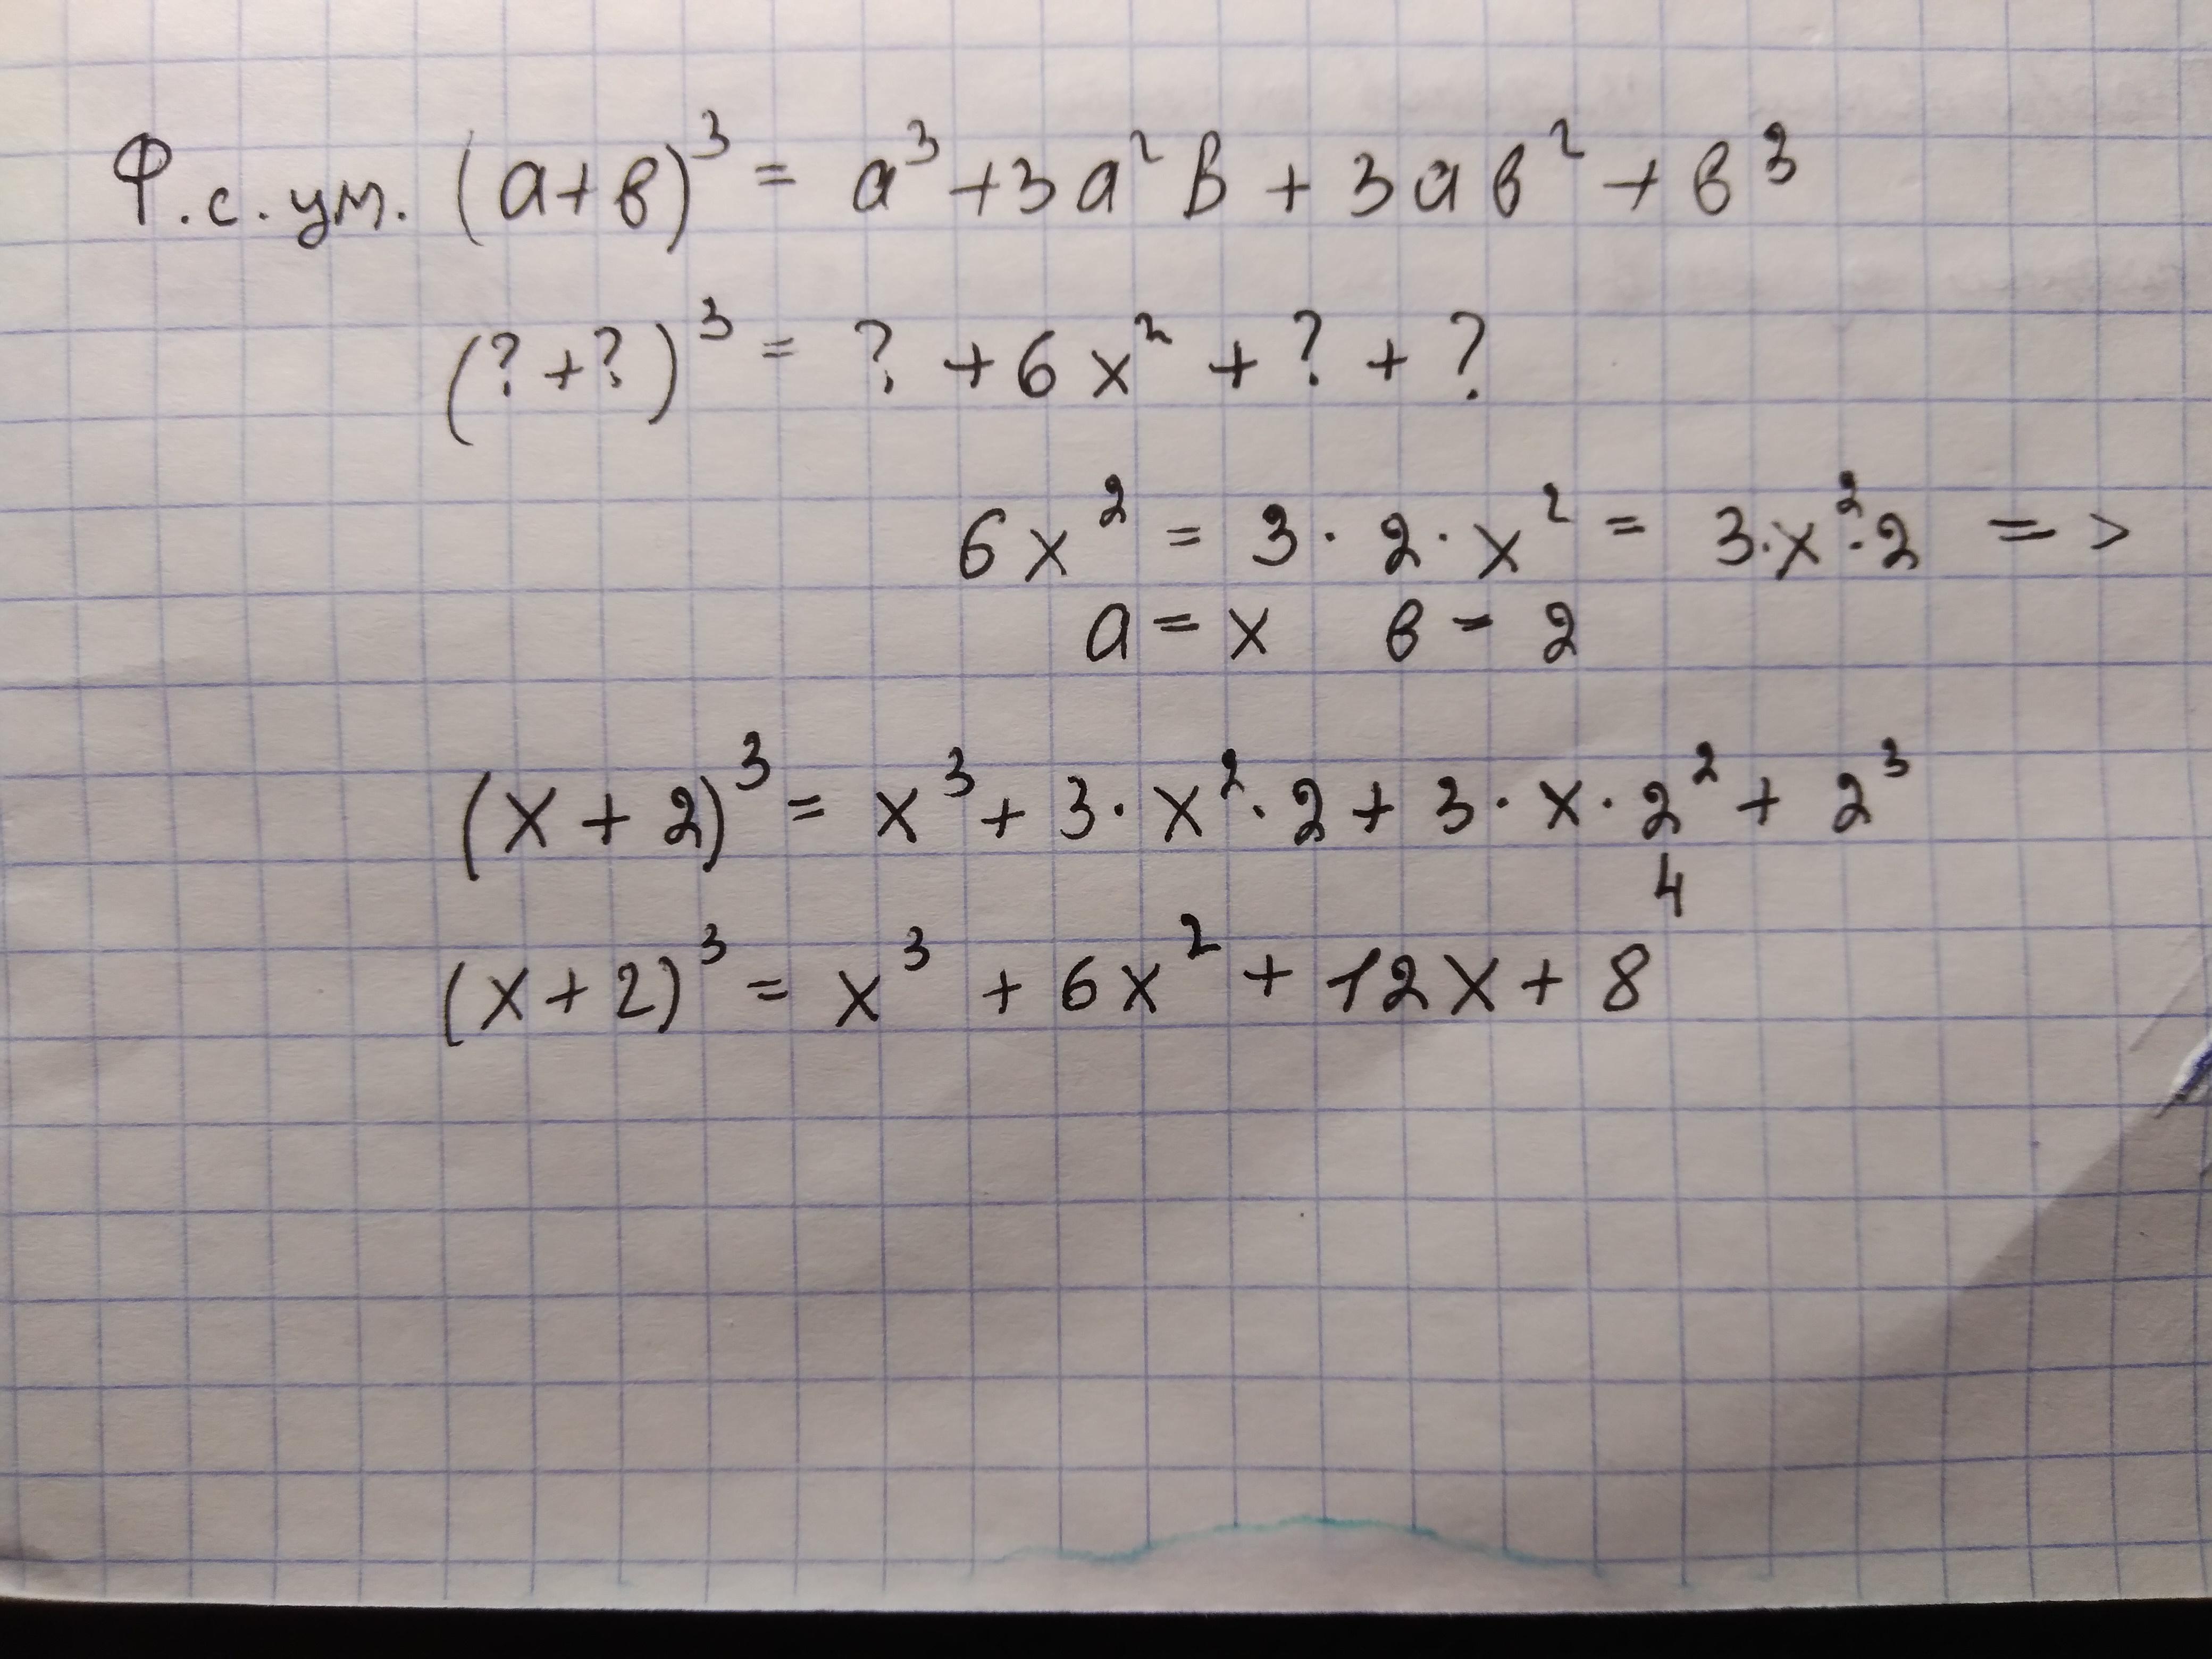 Ф.с.ум. (а+в)³ = а³ + 3а²в + 3ав² + в³
(? + ?)³ = ? + 6x² + ? + ?
6x² = 3 · 2 · x² = 3·x²·2 =>
а = x в = 2
(x + 2)³ = x³ + 3 · x² · 2 + 3 · x · 2² + 2³
4
(x + 2)³ = x³ + 6x² + 12x + 8